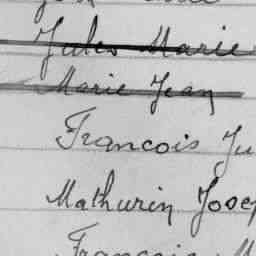 Jules Marie
Marie Jean
Francois Ju
Mathurin Josep
Francois M